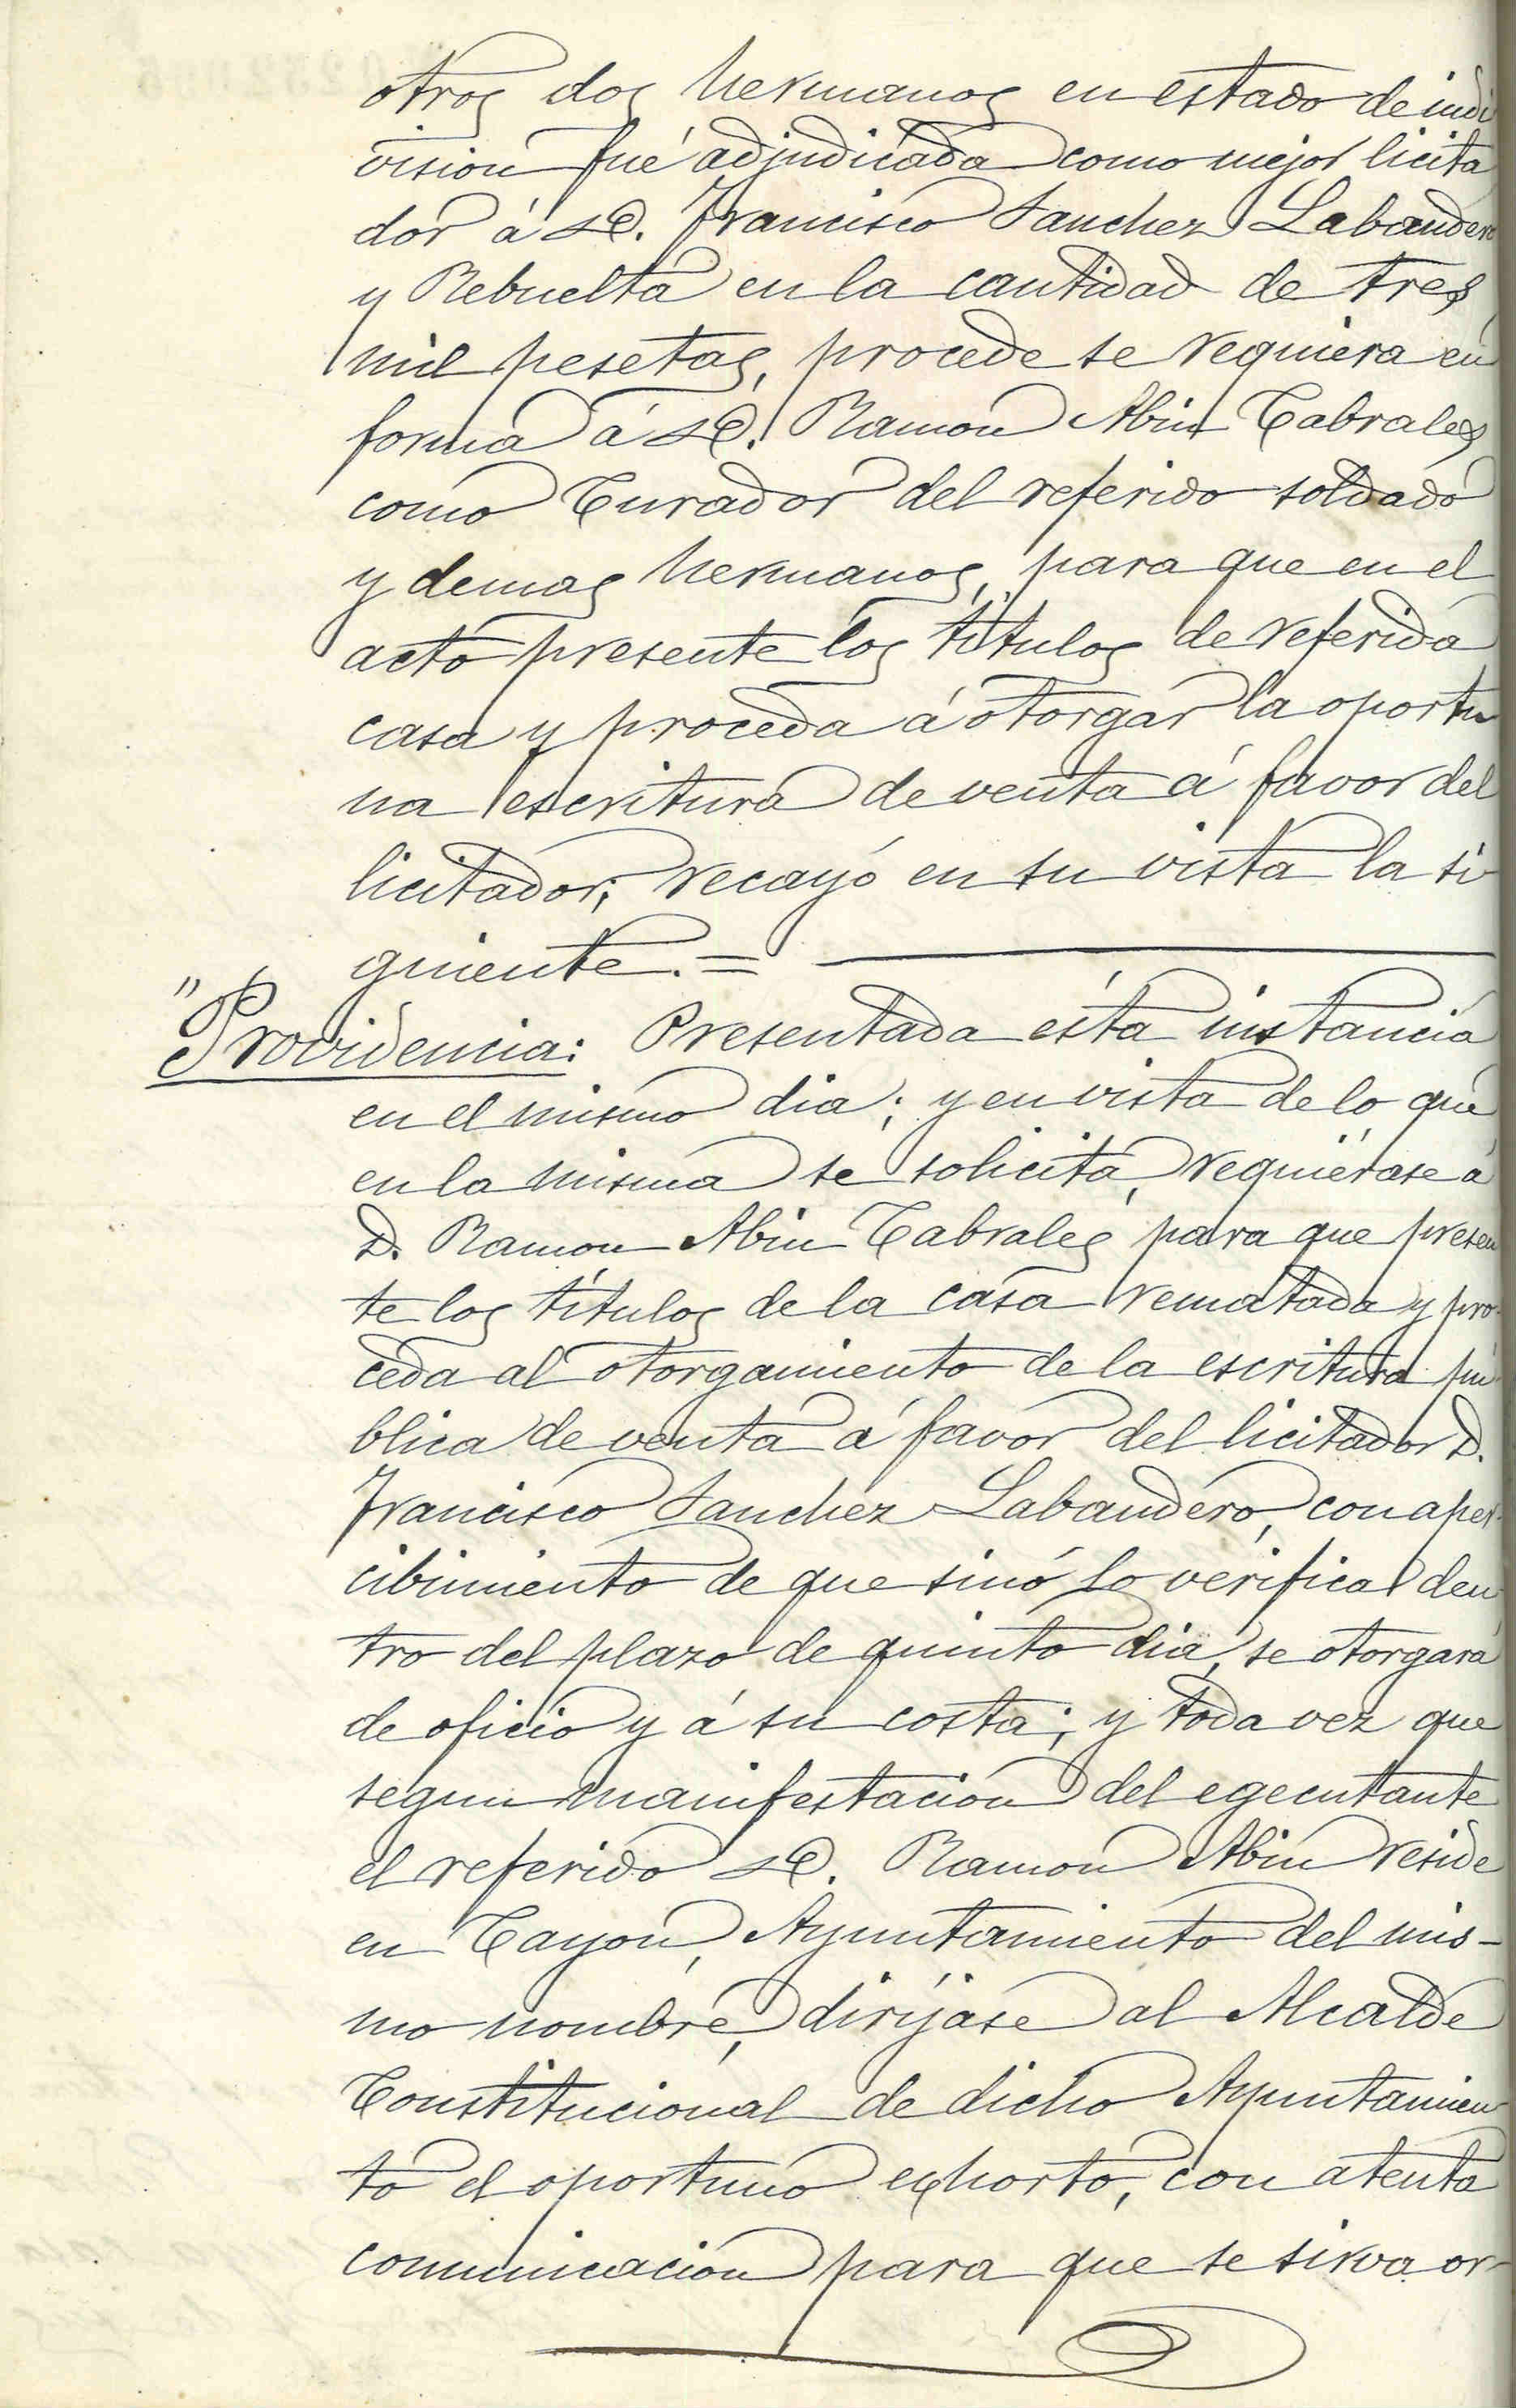 otros dos hermanos en estado de indi
vision fué adjudicada como mejor licita
dor á D. Francisco Sanchez Labandero
y Rebuelta en la cantidad de tres
mil pesetas, procede se requiera en
forma á D. Ramon Abin Cabrales
como Curador del referido soldado
y demas hermanos, para que en el
acto presente los titulos de referida
casa y proceda á otorgar la oportu
na escritura de venta á favor del
licitador; recayó en su vista la si
guiente.=
"Providencia: Presentada esta instancia
en el mismo dia; y en vista de lo que
en la misma se solicita, requiérase á
D. Ramon Abin Cabrales para que presen
te los títulos de la casa rematada y pro-
ceda al otorgamiento de la escritura pú
blica de venta á favor del licitador D.
Francisco Sanchez Labandero, con aper-
cibimiento de que sinó lo verifica den
tro del plazo de quinto dia, se otorgará
de oficio y á su costa; y toda vez que
segun manifestacion del egecutante
el referido D. Ramon Abin reside
en Cayon, Ayuntamiento del mis-
mo nombre, dirijase al Alcalde
Constitucional de dicho Ayuntamien
to el oportuno exhorto, con atenta
comunicacion para que se sirva or-